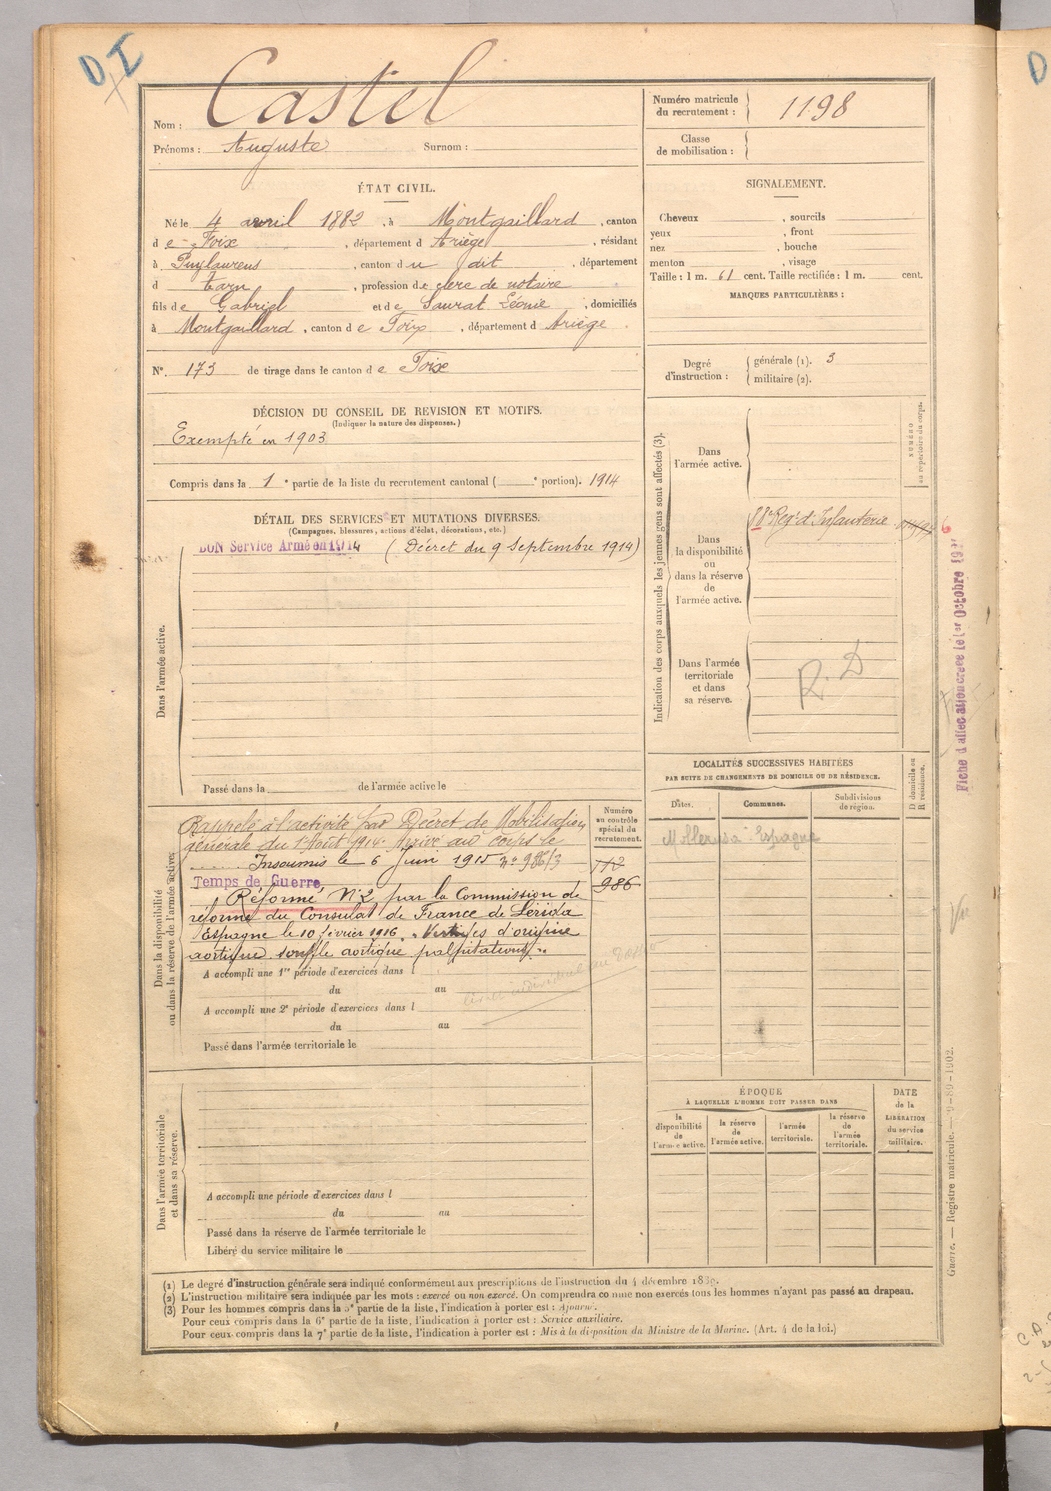 D I
D
Castel
Nom :
Prénoms : Auguste Surnom :
Numéro matricule
du recrutement : 1198
Classe
de mobilisation :
ÉTAT CIVIL.
Né le 4 avril 1882, à Montgaillard, canton
de Foix, département d Ariège, résidant
à Puylaurens, canton du dit, département
d Tarn, profession de clerc de notaire
fils de Gabriel et de Saurat Léonie, domiciliés
à Montgaillard, canton de Foix, département d Ariège.
N°. 173 de tirage dans le canton de Foix
SIGNALEMENT.
Cheveux , sourcils
yeux , front
nez , bouche
menton , visage
Taille : 1 m. 61 cent. Taille rectifiée : 1 m. cent.
MARQUES PARTICULIÈRES :
Degré
d'instruction :
générale (1). 3
militaire (2).
DÉCISION DU CONSEIL DE REVISION ET MOTIFS.
(Indiquer la nature des dispenses.)
Exempté en 1903
Compris dans la 1e partie de la liste du recrutement cantonal ( e portion). 1914
DÉTAIL DES SERVICES ET MUTATIONS DIVERSES.
(Campagnes, blessures, actions d'éclat, décorations, etc.)
BON Service Armé en 1914 (Décret du 9 Septembre 1914)
Dans l'armée active.
Passé dans la de l'armée active le
Indication des corps auxquels les jeunes gens sont affectés (3).
NUMÉRO
au répertoire du corps.
Dans
l'armée active.
Dans
la disponibilité
ou
dans la réserve
de
l'armée active.
88e Reg't d'Infanterie
Dans l'armée
territoriale
et dans
sa réserve.
R. D
Fiche d'affectation créée le 1er Octobre
Dans la disponibilité
ou dans la réserve de l'armée active.
Numéro
au contrôle
spécial du
recrutement.
Rappelé à l'activité par Décret de Mobilisation
générale du 1er Août 1914. Arrivé au corps le
Insoumis le 6 Juin 1915 n° 986/3
986
Temps de Guerre
Réformé N°2 par la Commission de
réforme du Consulat de France de Lérida
Espagne le 10 février 1916 "Vertiges d'origine
aortique souffle aortique palpitations".
A accompli une 1re période d'exercices dans l
du au
A accompli une 2e période d'exercices dans l
du au
Passé dans l'armée territoriale le
LOCALITÉS SUCCESSIVES HABITÉES
PAR SUITE DE CHANGEMENTS DE DOMICILE OU DE RÉSIDENCE.
D domicile ou
R résidence.
Dates. Communes. Subdivisions
de région.
Mollerusa Espagne
Dans l'armée territoriale
et dans sa réserve.
A accompli une période d'exercices dans l
du au
Passé dans la réserve de l'armée territoriale le
Libéré du service militaire le
ÉPOQUE
À LAQUELLE L'HOMME DOIT PASSER DANS
la
disponibilité
de
l'armée active.
la réserve
de
l'armée active.
l'armée
territoriale.
la réserve
de
l'armée
territoriale.
DATE
de la
LIBÉRATION
du service
militaire.
Guerre. — Registre matricule. — 9-89-1902.
(1) Le degré d'instruction générale sera indiqué conformément aux prescriptions de l'instruction du 4 décembre 1889.
(2) L'instruction militaire sera indiquée par les mots : exercé ou non exercé. On comprendra comme non exercés tous les hommes n'ayant pas passé au drapeau.
(3) Pour les hommes compris dans la 5e partie de la liste, l'indication à porter est : Ajourné.
Pour ceux compris dans la 6e partie de la liste, l'indication à porter est : Service auxiliaire.
Pour ceux compris dans la 7e partie de la liste, l'indication à porter est : Mis à la disposition du Ministre de la Marine. (Art. 4 de la loi.)